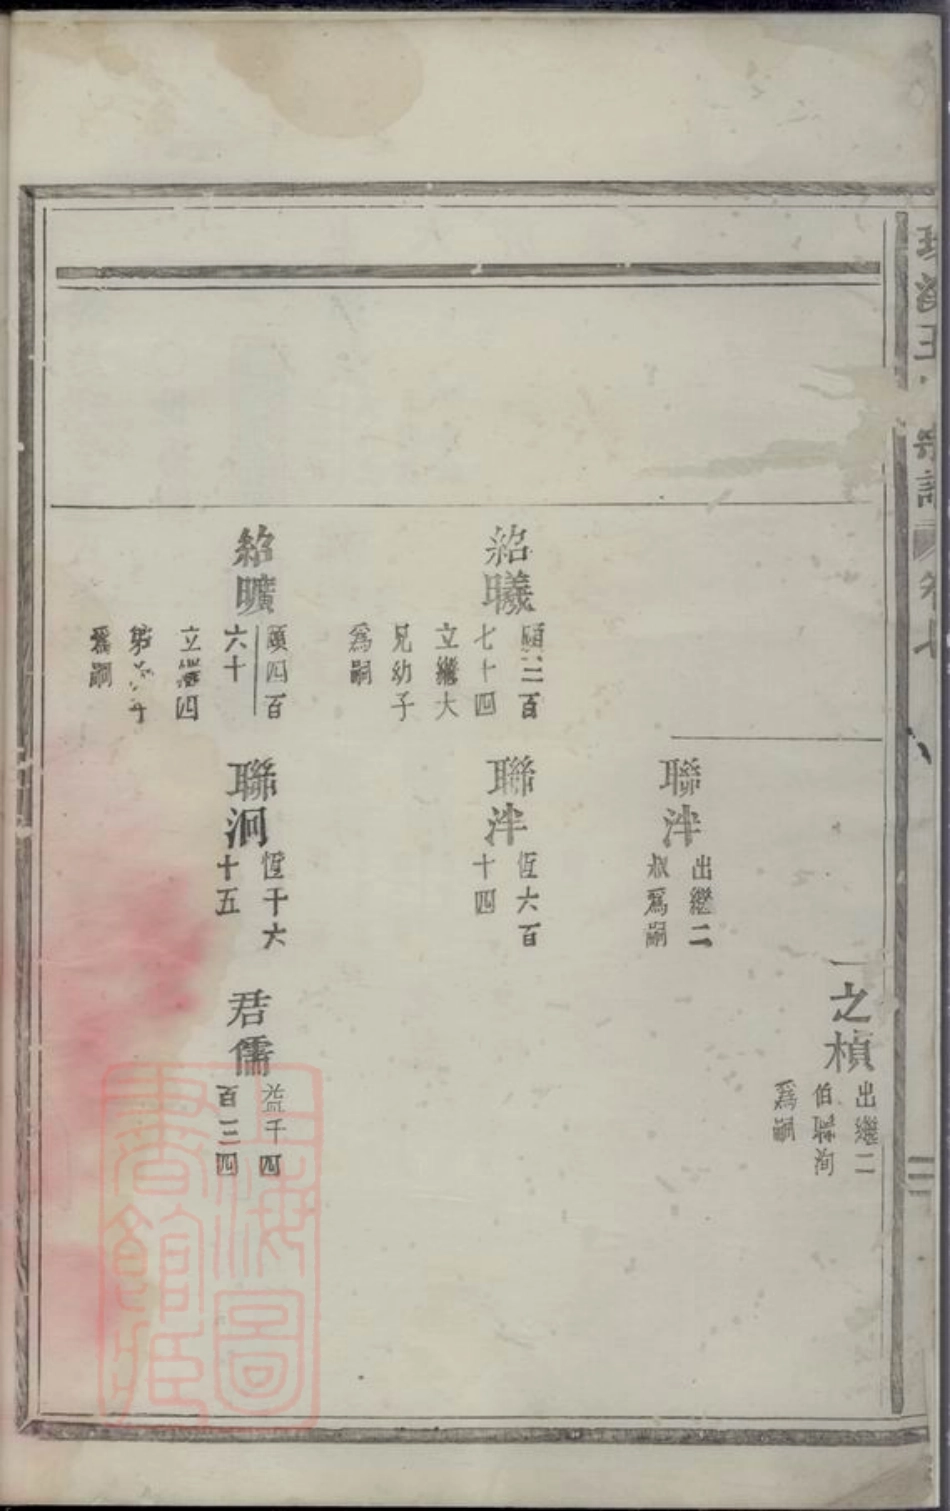 宗譜
卷七
之楨
出繼二
伯聯洵
爲嗣
聯泮
出繼二
叔爲嗣
紹曦
頤三百
七十四
立繼大
兄幼子
爲嗣
聯泮
恆六百
十四
紹曠
頤四百
六十
立繼四
弟子
爲嗣
聯泂
恆千六
十五
君儒
益千四
百三四
上海圖
書館藏